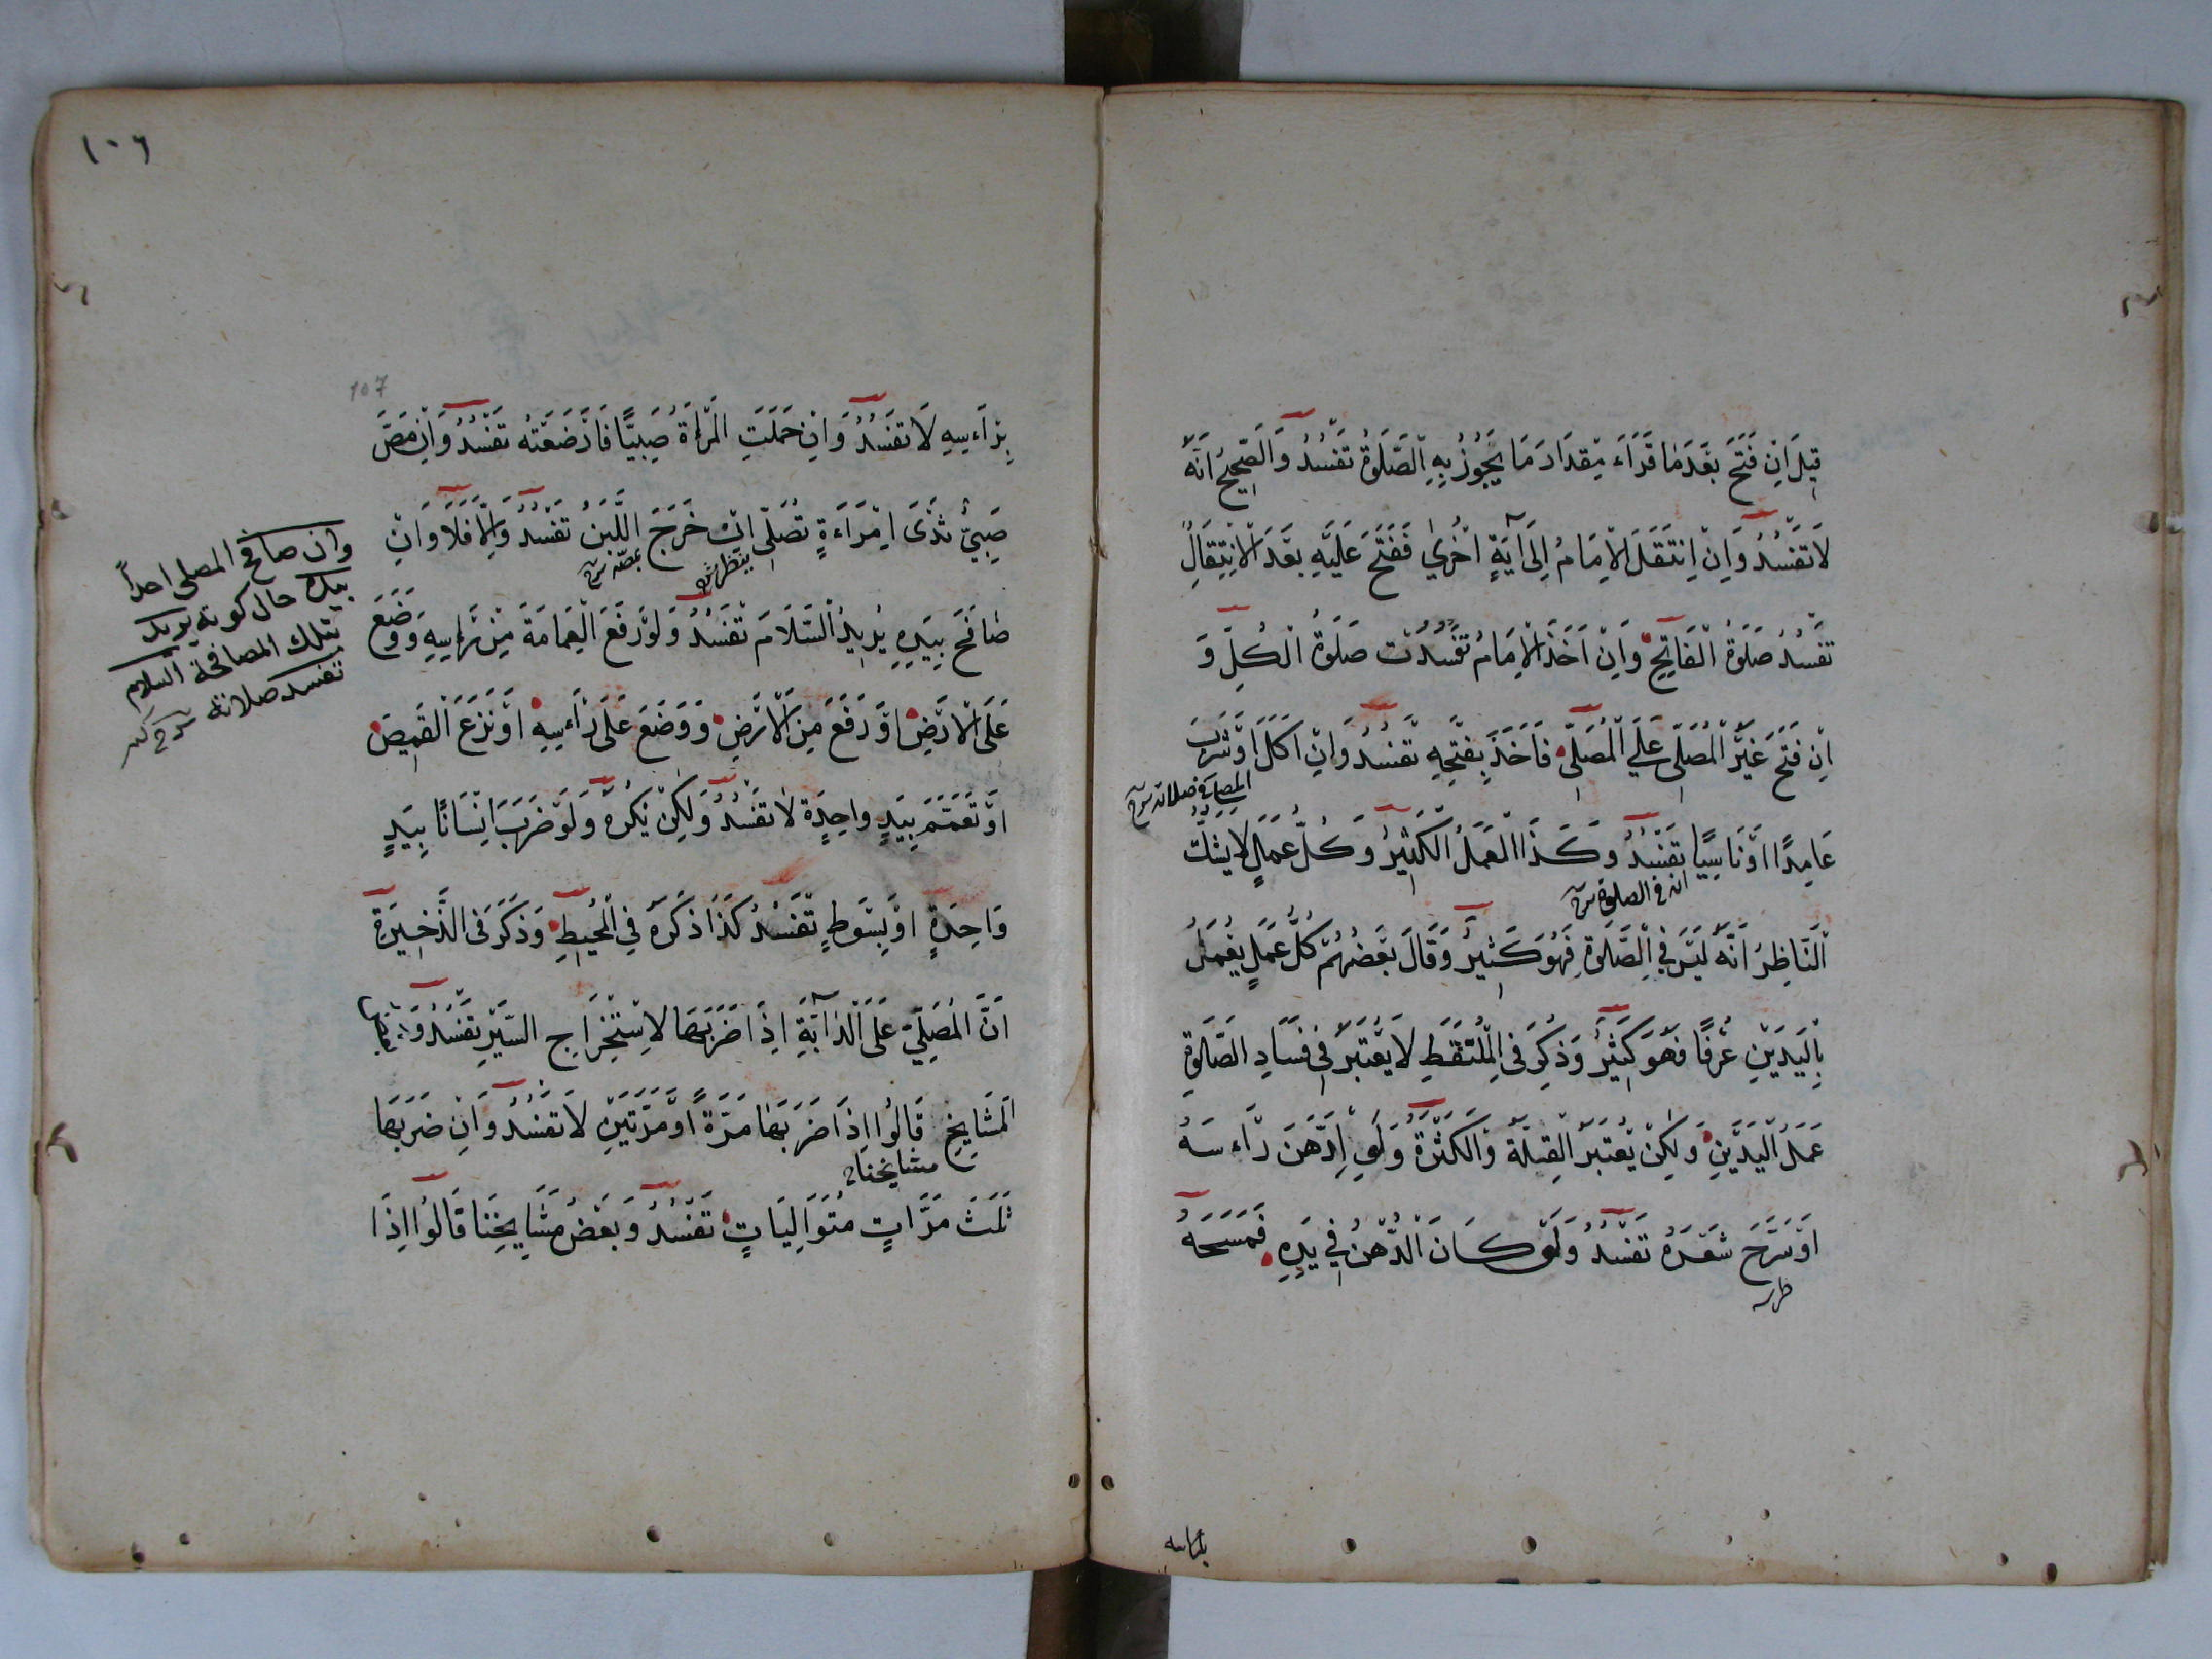 قِيلَ اِنْ فَتَحَ بَعْدَمَا قَرَاءَ مِقْدَارَ مَا يَجُوزُ بِهِ الصَّلَوةُ تَفْسُدُ وَالصَّحِيحُ اَنَّهُ
لَا تَفْسُدُ وَاِنْ اِنْتَقَلَ الْاِمَامُ اِلَى آيَةٍ اُخْرٰي فَفَتَحَ عَلَيْهِ بَعْدَ الْاِنْتِقَالِ
تَفْسُدُ صَلَوةُ الْفَاتِحِ وَاِنْ اَخَذَ الْاِمَامُ تَفْسُدَتْ صَلَوةُ الْكُلِّ وَ
اِنْ فَتَحَ غَيْرُ الْمُصَلِّي عَلَي الْمُصَلِّي فَاَخَذَ بِفَتْحِهِ تَفْسُدُ وَاِنْ اَكَلَ اَوْ شَرِبَ
المصلى في صلاته
عَامِدًا اَوْ نَاسِيًا تَفْسُدُ وَكَذَا الْعَمَلُ الْكَثِيرُ وَكُلُّ عَمَلٍ لَا يَشُكُّ
انه في الصلوة
اَلنَّاظِرُ اَنَّهُ لَيْسَ فِي الصَّلَوةِ فَهُوَ كَثِيرٌ وَقَالَ بَعْضُهُمْ كُلُّ عَمَلٍ يُعْمَلُ
بِالْيَدَيْنِ عُرْفًا فَهُوَ كَثِيرٌ وَذُكِرَ فِي الْمُلْتَقَطِ لَا يُعْتَبَرُ فِي فَسَادِ الصَّلَوةِ
عَمَلُ الْيَدَيْنِ وَلٰكِنْ يُعْتَبَرُ الْقِلَّةُ وَالْكَثْرَةُ وَلَوِ ادَّهَنَ رَاءسَهُ
اَوْ سَرَّحَ شَعْرَهُ تَفْسُدُ وَلَوْ كَانَ الدُّهْنُ فِي يَدِهِ فَمَسَحَهُ
١٠٦
107
بِرَاءسِهِ لَا تَفْسُدُ وَاِنْ حَمَلَتِ الْمَرْاَةُ صَبِيًّا فَاَرْضَعَتْهُ تَفْسُدُ وَاِنْ مَصَّ
صَبِيٌّ ثَدْيَ اِمْرَاءَةٍ تُصَلِّي اِنْ خَرَجَ اللَّبَنُ تَفْسُدُ وَاِلَّا فَلَا وَاِنْ
صَافَحَ بِيَدِهِ يُرِيدُ السَّلَامَ تَفْسُدُ وَلَوْ رَفَعَ الْعِمَامَةَ مِنْ رَاءسِهِ وَوَضَعَ
عَلَى الْاَرْضِ اَوْ رَفَعَ مِنَ الْاَرْضِ وَوَضَعَ عَلَى رَاءسِهِ اَوْ نَزَعَ الْقَمِيصَ
اَوْ تَعَمَّمَ بِيَدٍ وَاحِدَةٍ لَا تَفْسُدُ وَلٰكِنْ يُكْرَهُ وَلَوْ ضَرَبَ اِنْسَانًا بِيَدٍ
وَاحِدَةٍ اَوْ بِسَوْطٍ تَفْسُدُ كَذَا ذَكَرَهُ فِي الْمُحِيطِ وَذَكَرَ فِي الذَّخِيرَةِ
اَنَّ الْمُصَلِّيَ عَلَى الدَّابَّةِ اِذَا ضَرَبَهَا لِاسْتِخْرَاجِ السَّيْرِ تَفْسُدُ وَبَعْضُ
الْمَشَايِخِ قَالُوا اِذَا ضَرَبَهَا مَرَّةً اَوْ مَرَّتَيْنِ لَا تَفْسُدُ وَاِنْ ضَرَبَهَا
مشايخنا
ثَلٰثَ مَرَّاتٍ مُتَوَالِيَاتٍ تَفْسُدُ وَبَعْضُ مَشَايِخِنَا قَالُوا اِذَا
وان صافح المصلى احداً
بيده حال كونه يريد
بتلك المصافحة السلام
تفسد صلاته